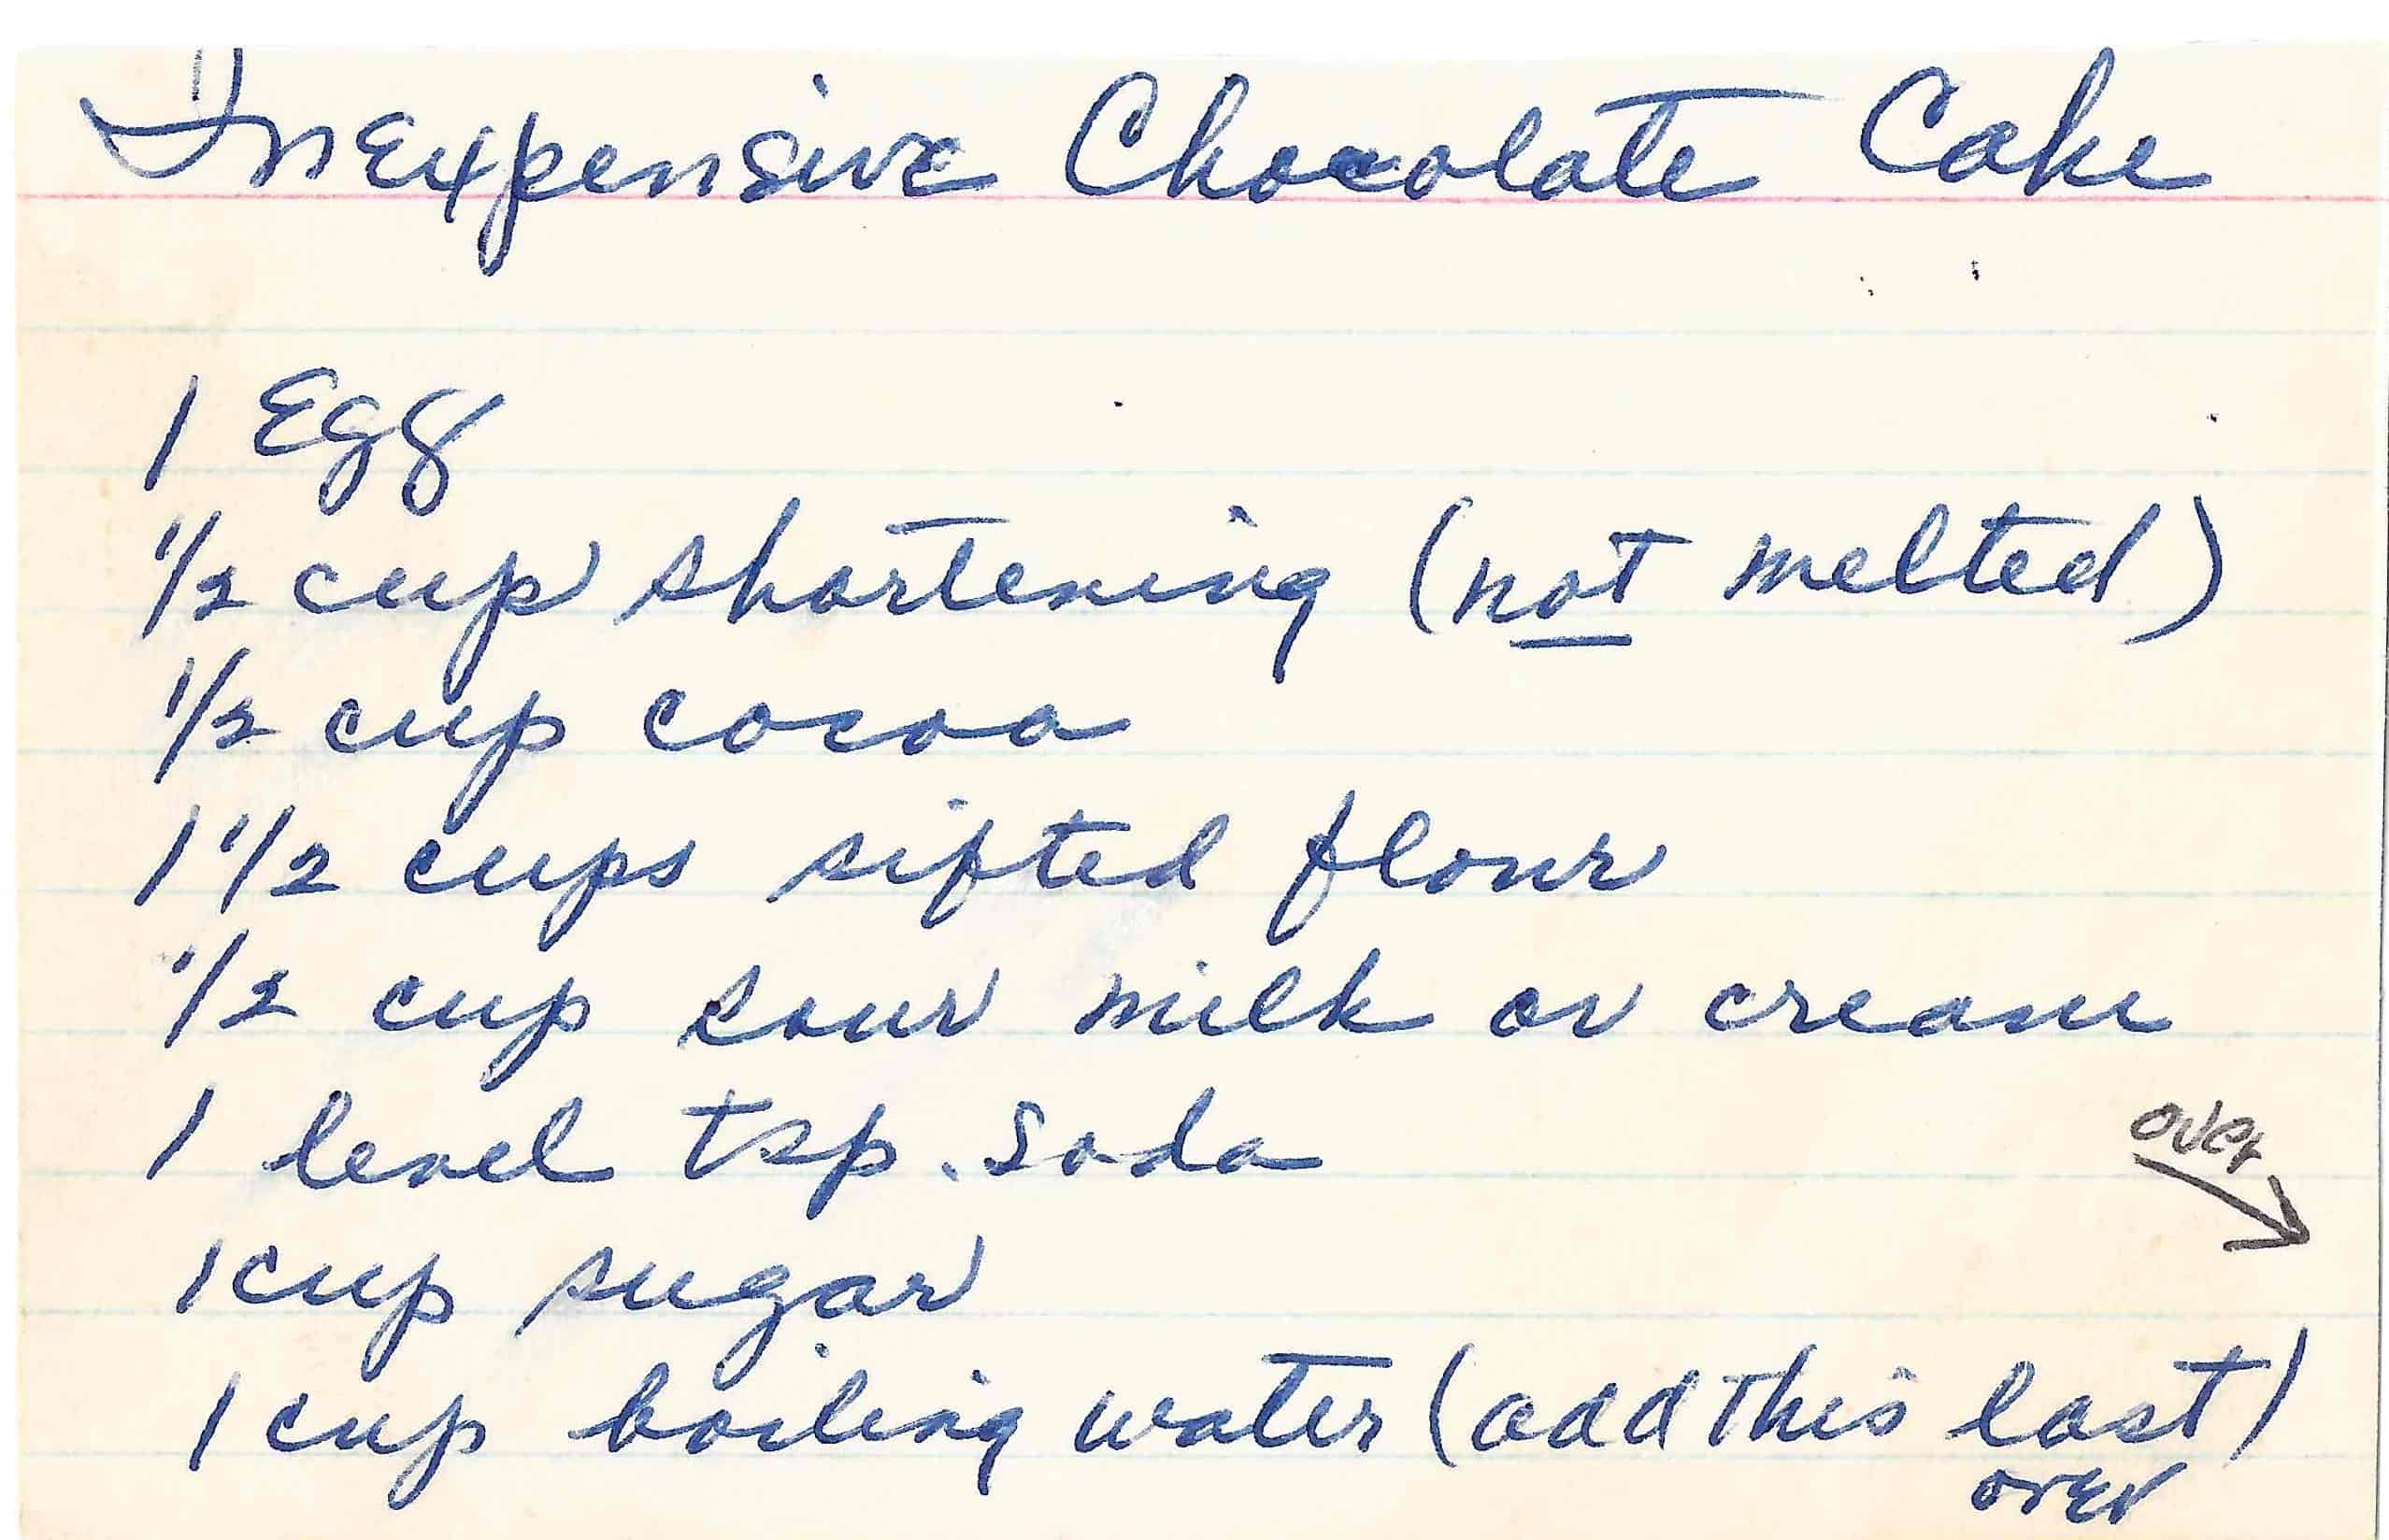 Inexpensive Chocolate Cake
1 Egg
1/2 cup shortening (not melted)
1/2 cup cocoa
1 1/2 cups sifted flour
1/2 cup sour milk or cream
1 level tsp. soda
over
1 cup sugar
1 cup boiling water (add this last)
over